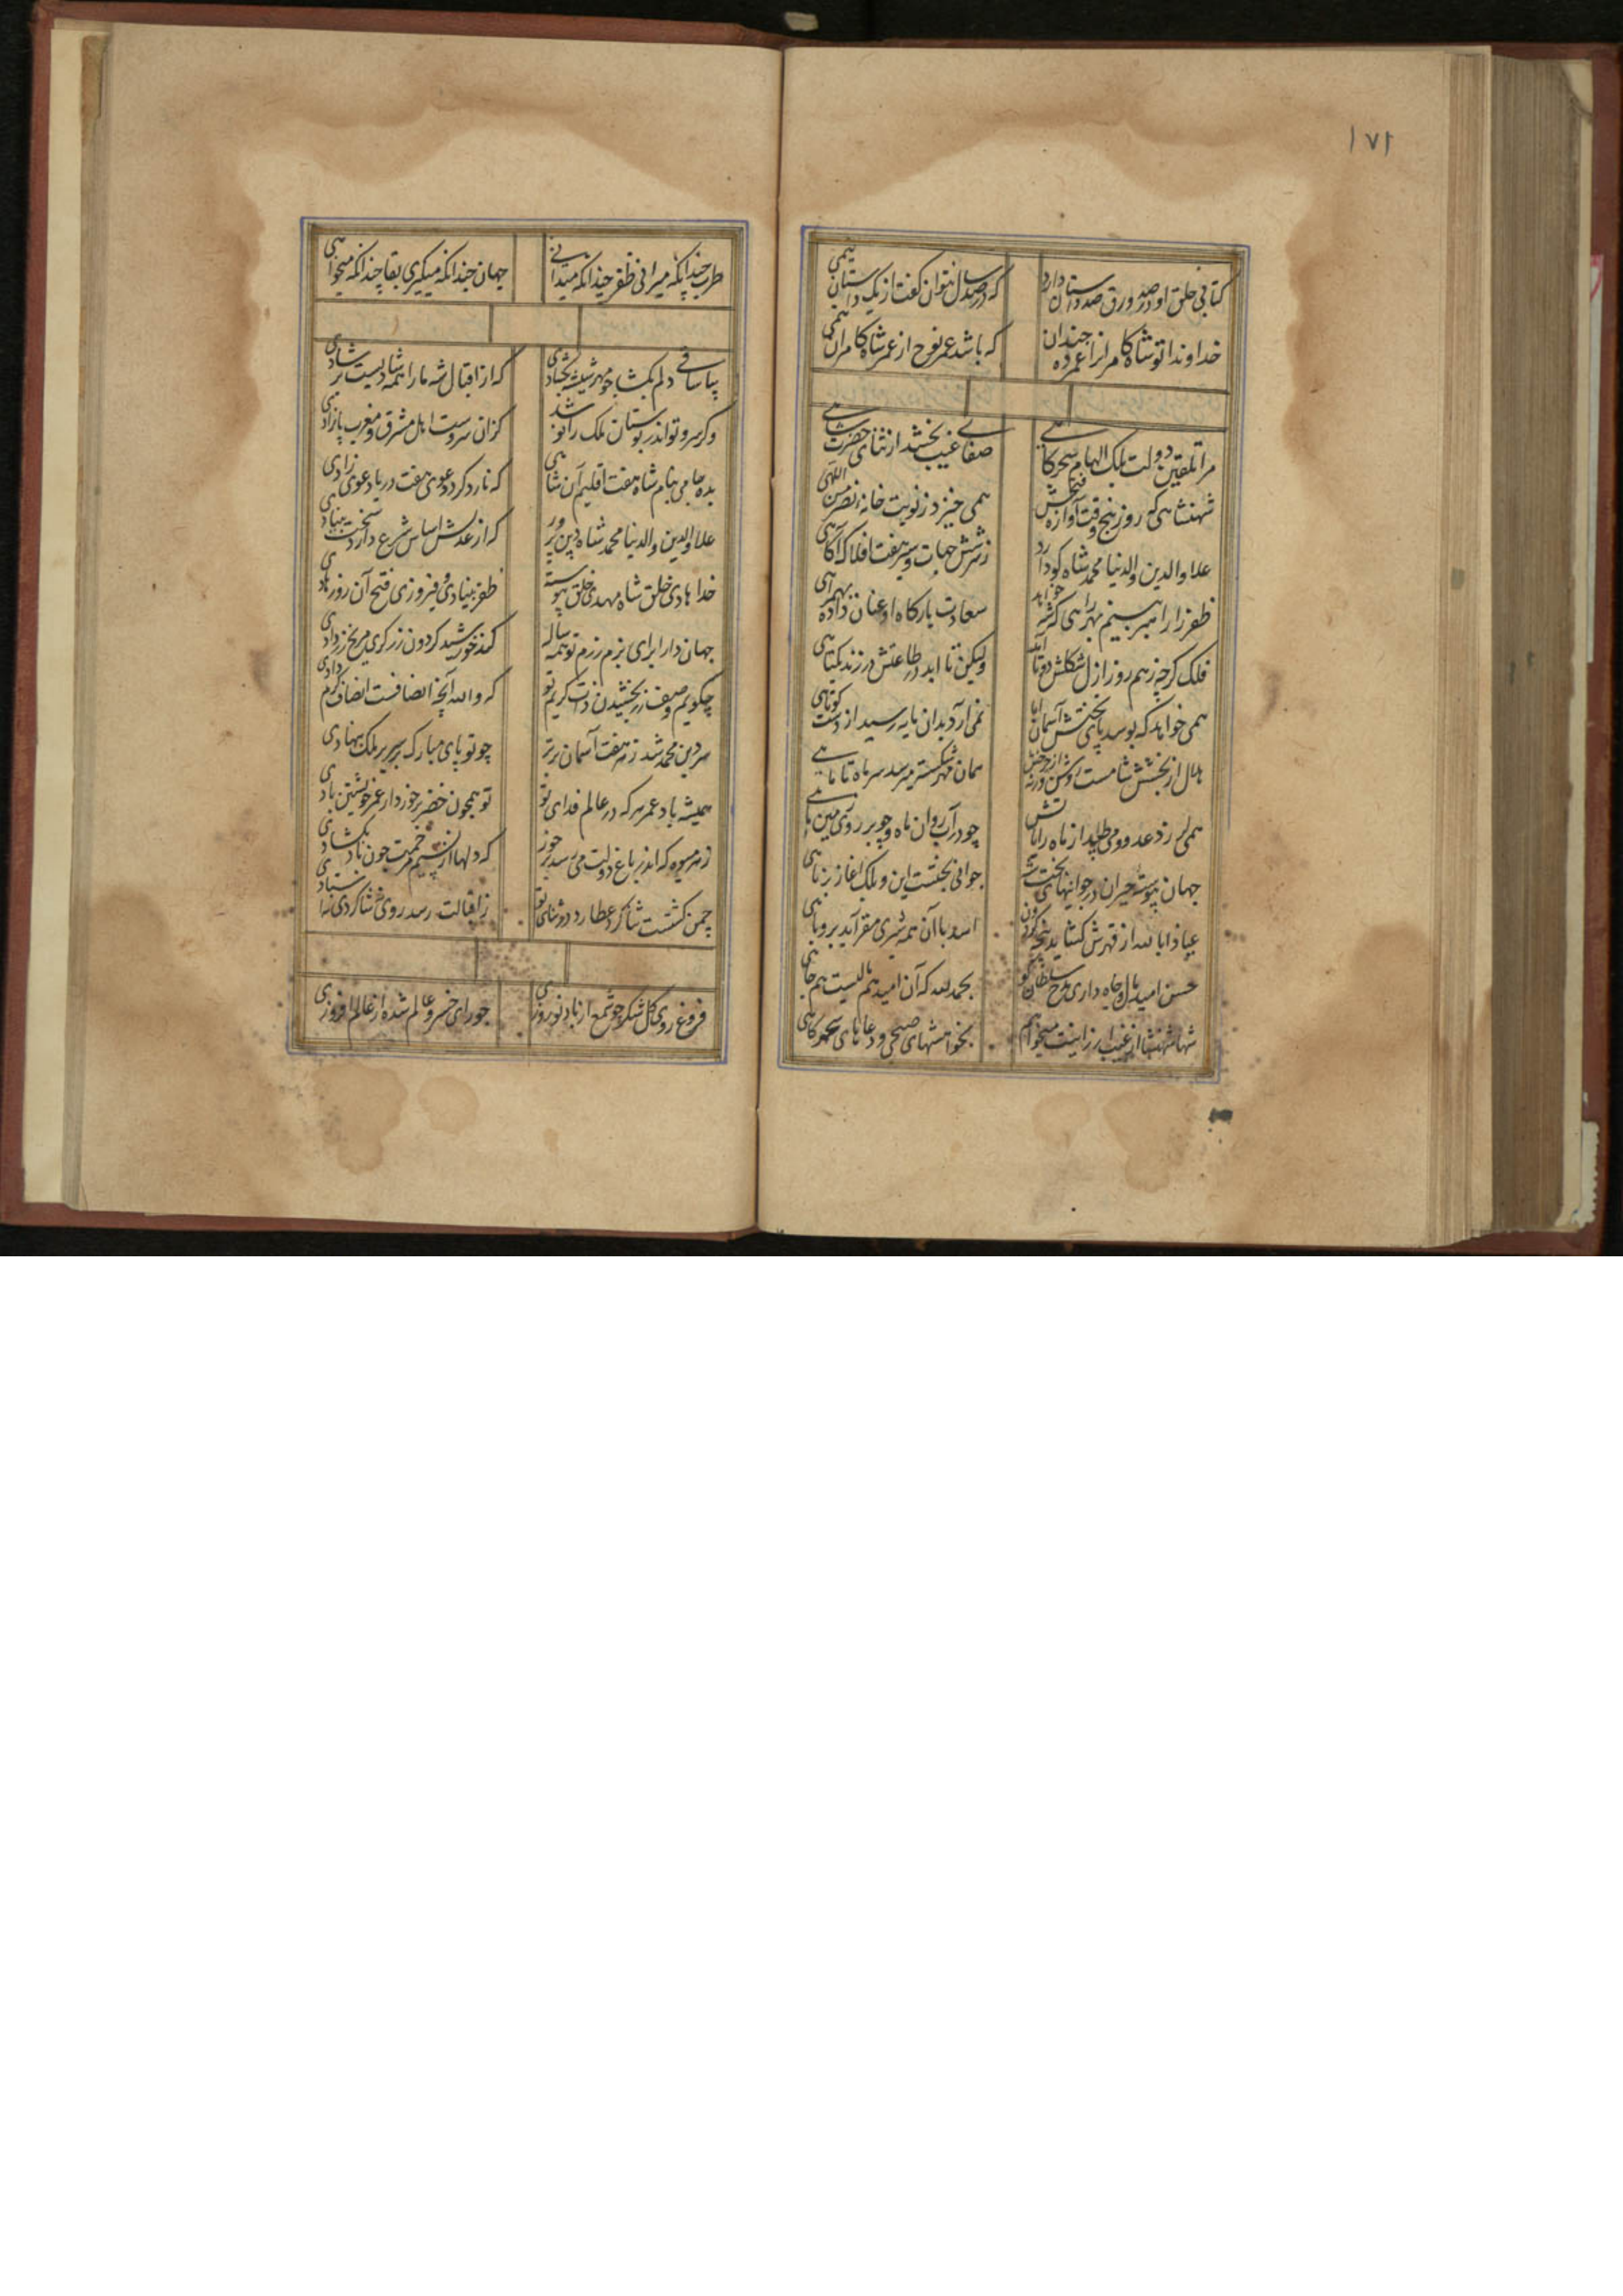 ۱۷۱
کتابی خلق او در صد ورق صد داستان دارد
که در صد سال نتوان گفت از یک داستان نیمی
خداوندا تو شاه کامران را عمر ده چندان
که باشد عمر نوح از عمر شاه کامران نیمی
مرا تلقین دولت بلک الهام سحرگاهی
صفا غیب بخشد از ثنای حضرت شاهی
شهنشاهی که روز پنج وقت آوازه فتحش
همی خیزد ز نوبت خانه نصر من اللهی
علاء الدین والدنیا محمد شاه کو دارد
ز شش جهات و سیر هفت افلاک آگاهی
ظفر را راهبر بینم بهر راهی که شه خواهد
سعادت بارگاه او عنان داده بهمراهی
فلک گرچه ز هم روز ازل شکلش دوتا آمد
ولیکن تا ابد در طاعتش در زد یکتاهی
همی خواهد که بوسد پای تختش آسمان اما
نمی آرد بدان پایه رسید از دست کوتاهی
هلال از بخشش شامست روشن ورنه از چرخش
همان قرص شکسته میرسد سر ماه تا ماهی
همی لرزد عدو و می طپد از ماه رایاتش
چو در آب روان ماه و چو بر روی زمین ماهی
جهان پیوسته حیران در جوانیهای بخت شه
جوانی بخشت این و بلک اغاز برناهی
عیاذا بالله از قهرش گشاید پنجه گردون
اسد با آن همه شیری مقر آید بروباهی
حسن امید مال و جاه داری مدح سلطان گو
بحمد لله که آن امید هم مالیست هم جاهی
شها شهنشاها از غیب ارزانیت میخواهم
بخواهشهای صبحی و دعاهای سحرگاهی
طرب چندانکه میرانی ظفر چندانکه میدانی
جهان چندانکه میگیری بقا چندانکه میخواهی
بیا ساقی دلم بگشا چو مهر شیشه بگشادی
که از اقبال شه ما را همه شادیست بر شادی
وگر سرو تو اندر بوستان ملک رانو شد
کزان سروست اهل مشرق و مغرب بازادی
بده جامی بنام شاه هفت اقلیم آن شاهی
که نارد کرد دعوی هفت دریا دعوی رادی
علاء الدین والدنیا محمد شاه دین پرور
که از عدلش اساس شرع دارد سخت بنیادی
خدا هادی خلق شاه مهدی خلق پیوسته
ظفر بنیادی و فیروزی فتح آن روز هادی
جهان دارا برای بزم رزم تو همه ساله
کند خورشید گردون زرگری مریخ زرادی
چگویم وصف زر بخشیدن ذات کریم تو
که والله آنچه انصافست انصاف کرم دادی
سر دین محمد شد ز نه هفت آسمان برتر
چو تو پای مبارک بر سریر ملک بنهادی
همیشه باد عمر هر که در عالم فدای تو
تو همچون خضر برخوردار عمر خویشتن بادی
ز هر میوه که اندر باغ دولت می رسد برخور
که دلها از نسیم مرحمت چون باد بگشادی
چمن گشتست شاگرد عطارد در ثنای تو
ز اقبالت رسد روی شاگردی باستادی
فروغ روی گل بنگر چو شمع از باد نوروزی
چو رای خسرو عالم شده از عالم افروزی